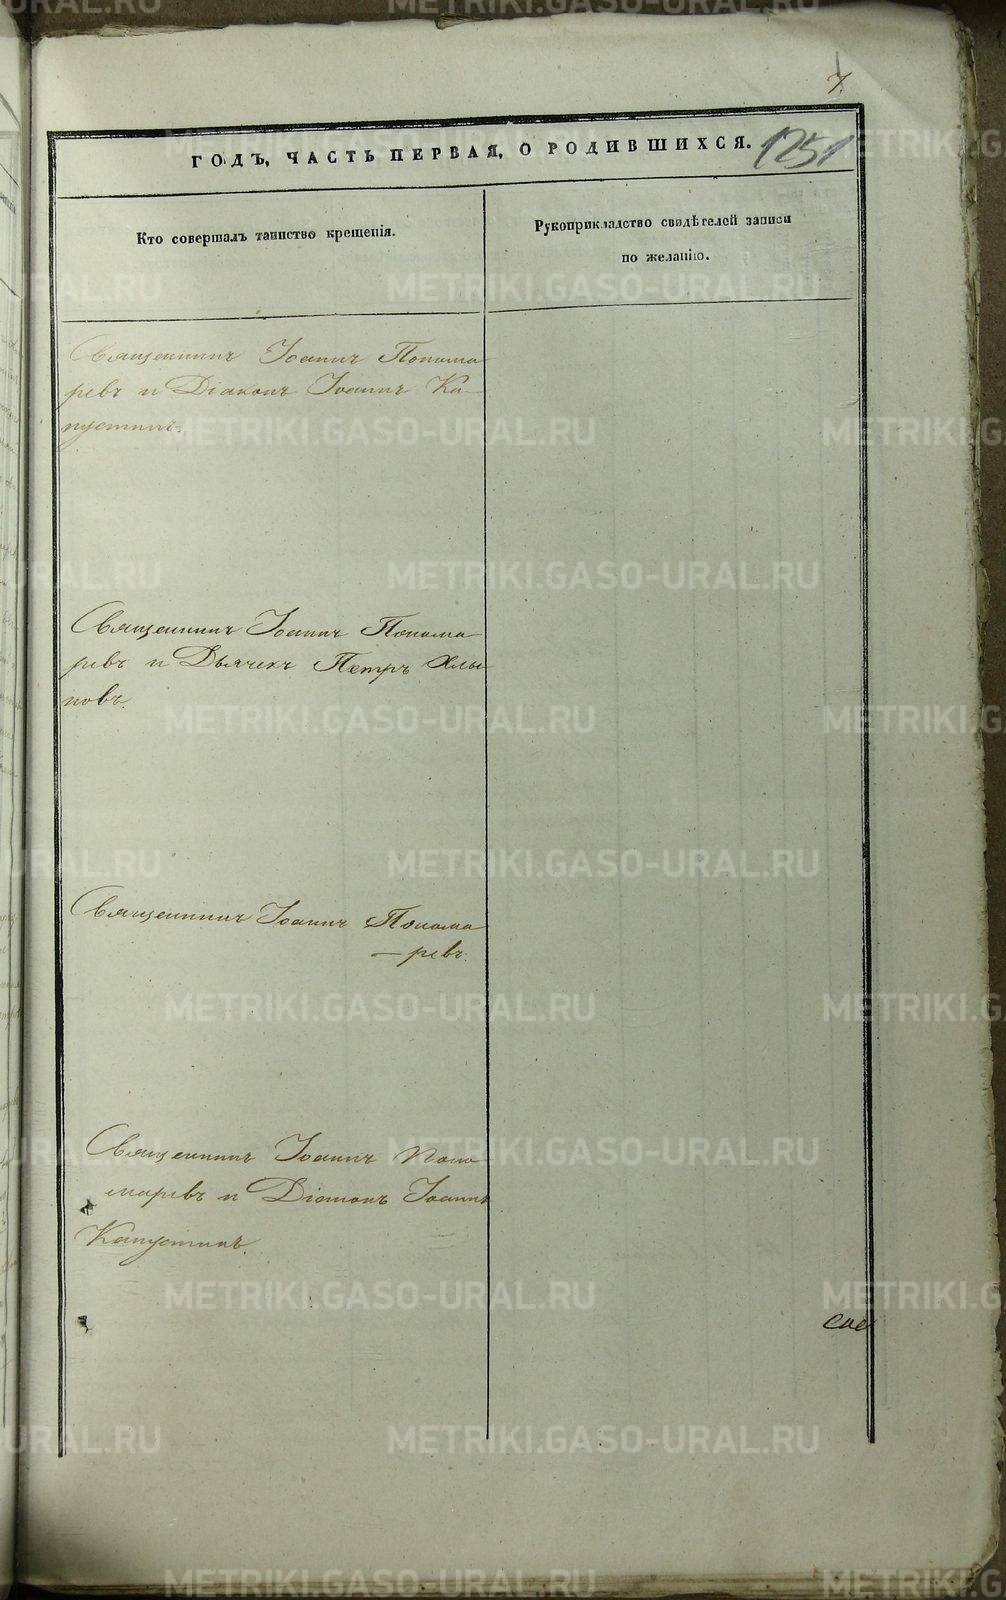 7
ГОДЪ, ЧАСТЬ ПЕРВАЯ, О РОДИВШИХСЯ. 1251
Кто совершалъ таинство крещенія.
Рукоприкладство свидѣтелей записи
по желанію.
Священникъ Іоаннъ Понома
ревъ и Діаконъ Іоаннъ Ка-
пустинъ.
Священникъ Іоаннъ Понома
ревъ и Дьячекъ Петръ Хлы
новъ.
Священникъ Іоаннъ Понома
—ревъ.
Священникъ Іоаннъ Поно
маревъ и Діаконъ Іоаннъ
Капустинъ.
METRIKI.GASO-URAL.RU